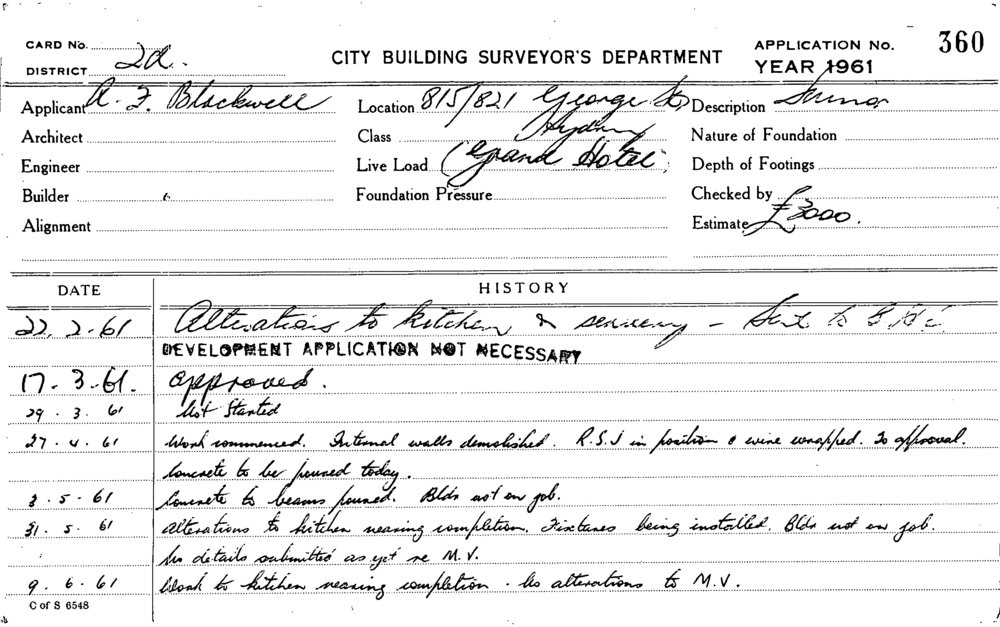 CARD No.
DISTRICT 2d.
CITY BUILDING SURVEYOR'S DEPARTMENT
APPLICATION No. 360
YEAR 1961
Applicant A. F. Blackwell
Location 815/821 George St Sydney (Grand Hotel)
Description Minor
Architect
Class
Nature of Foundation
Engineer
Live Load
Depth of Footings
Builder
Foundation Pressure
Checked by
Alignment
Estimate £3000.
DATE
HISTORY
22.2.61 Alterations to kitchen & servery - Sent to
DEVELOPMENT APPLICATION NOT NECESSARY
17.3.61. Approved.
29.3.61 Not Started
27.4.61 Work commenced. Internal walls demolished. R.S.J in position & wire wrapped. To approval.
Concrete to be poured today.
3.5.61 Concrete to beams poured. Bldr not on job.
31.5.61 Alterations to kitchen nearing completion. Fixtures being installed. Bldr not on job.
No details submitted as yet re M.V.
9.6.61 Work to kitchen nearing completion. No alterations to M.V.
C of S 6548